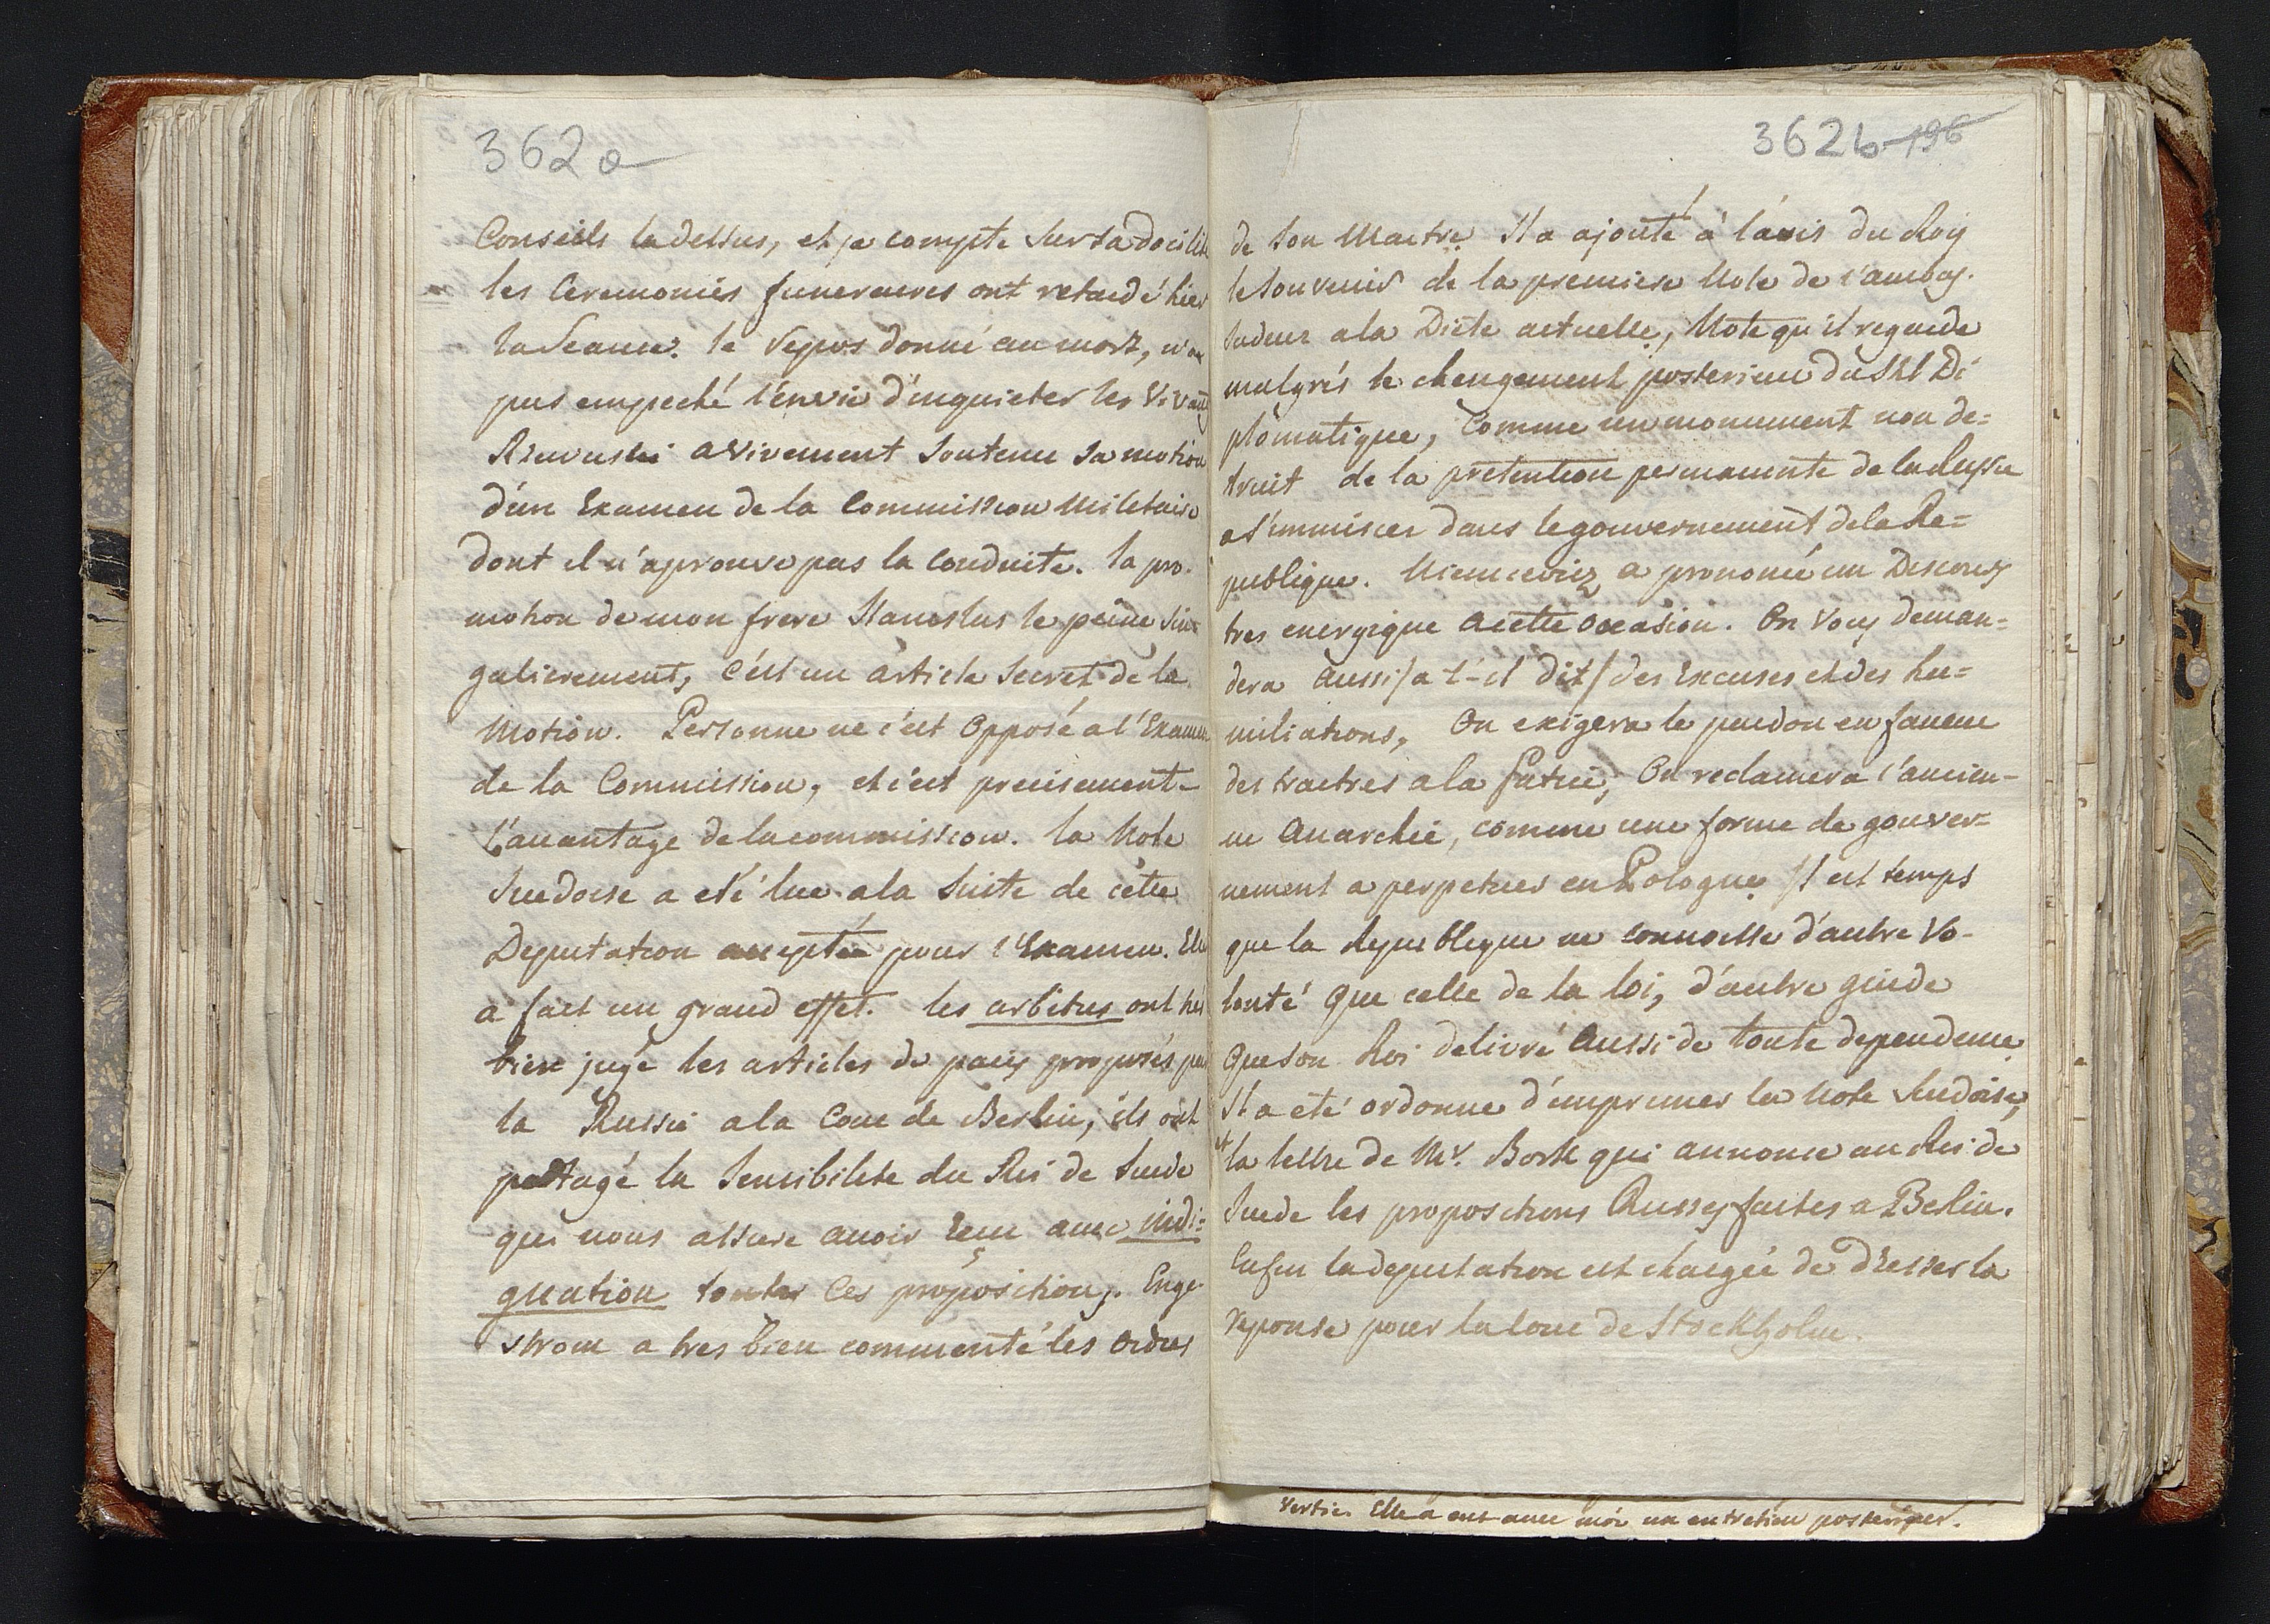 362a
Conseils la dessus, et je compte sur sa docilité
les Ceremonies funeraires ont retardé hier
la Seance. le repos donné au mort, n'a
pas empeché l'envie d'inquieter les Vivans
Rzewuski a vivement soutenu sa motion
d'un Examen de la Commission Militaire
dont il n'aprouve pas la conduite. la pro-
motion de mon frere Stanislas le peine sin-
gulierement, c'est un article secret de la
Motion. Personne ne s'est opposé a l'Examen
de la Commission, et c'est precisement
l'avantage de la commission. la Note
Suedoise a eté lue a la suite de cette
Deputation acceptée pour l'Examen. Elle
a fait un grand effet. les arbitres ont trés
bien jugé les articles de paix proposés par
la Russie a la Cour de Berlin, ils ont
partagé la Sensibilité du Roi de Suede
qui nous assure avoir reçu avec indi-
gnation toutes ces propositions. Enge-
strom a tres bien commenté les ordres
362b 196
de son Maitre Il a ajouté à l'avis du Roy
le souvenir de la premiere Note de l'ambas-
sadeur a la Diete actuelle, Note qu'il regarde
malgrés le changement posterieur du Stil Di
plomatique, comme un monument non de=
truit de la pretention permanente de la Russie
a s'immiscer dans le gouvernement de la Re=
publique. Niemcewicz a prononcé un Discours
tres energique a cette occasion. On Vous deman=
dera aussi /a t-il dit/ des Excuses et des hu=
miliations, On exigera le pardon en faveur
des traitres a la Patrie, On reclamera l'ancien-
ne Anarchie, comme une forme de gouver=
nement a perpetuer en Pologne Il est temps
que la Republique ne connoisse d'autre Vo-
lonté que celle de la loi, d'autre guide
que son Roi delivré aussi de toute dependence
Il a eté ordonné d'imprimer la Note Suedoise,
et la lettre de Mr. Bork qui annonce au Roi de
Suede les propositions Russes faites a Berlin.
Enfin la deputation est chargée de dresser la
reponse pour la Cour de Stockholm.
Vertie. Elle a eut avec moi un entretien posterieur.